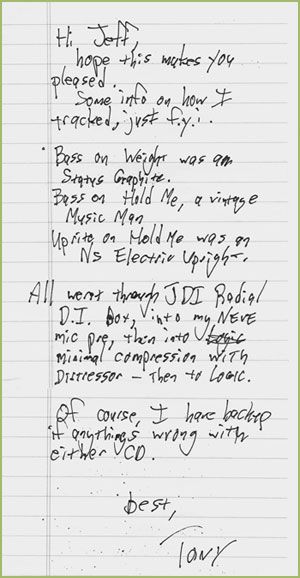 Hi Jeff,
hope this makes you
pleased.
Some info on how I
tracked, just f.y.i.
Bass on Weight was an
Status Graphite.
Bass on Hold Me, a vintage
Music Man
Uprite on Hold Me was an
NS Electric Upright.
All went through JDI Radial
D.I. box, into my NEVE
mic pre, then into
minimal compression with
Distressor – then to Logic.
Of course, I have backup
if anythings wrong with
either CD.
best,
Tony